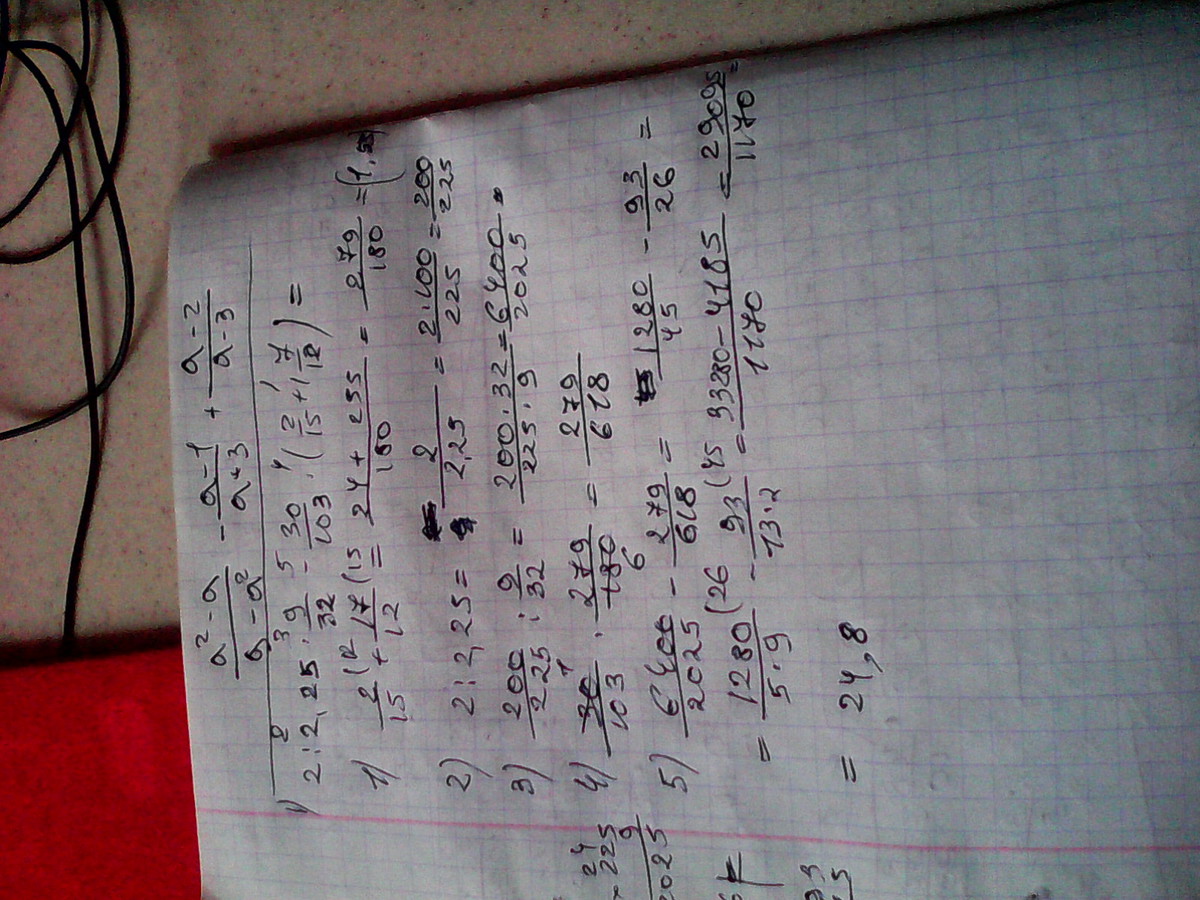 (a² - a)/(9 - a²) - (a - 1)/(a + 3) + (a - 2)/(a - 3)
1) 2 : 2,25 : 9/32 - 30/103 · (2/15 + 1 7/12) =
1) 2/15 (12 + 17/12 (15 = (24 + 255)/180 = 279/180 = (1,55)
2) 2 : 2,25 = 2/2,25 = 2·100/225 = 200/225
3) 200/225 : 9/32 = 200·32/225·9 = 6400/2025
4) 30/103 · 279/180 = 279/618
5) 6400/2025 - 279/618 = 1280/45 - 93/26 =
= 1280/5·9 (26 - 93/13·2 (45 = (33280 - 4185)/1170 = 29095/1170 =
= 24,8
225
9
2025